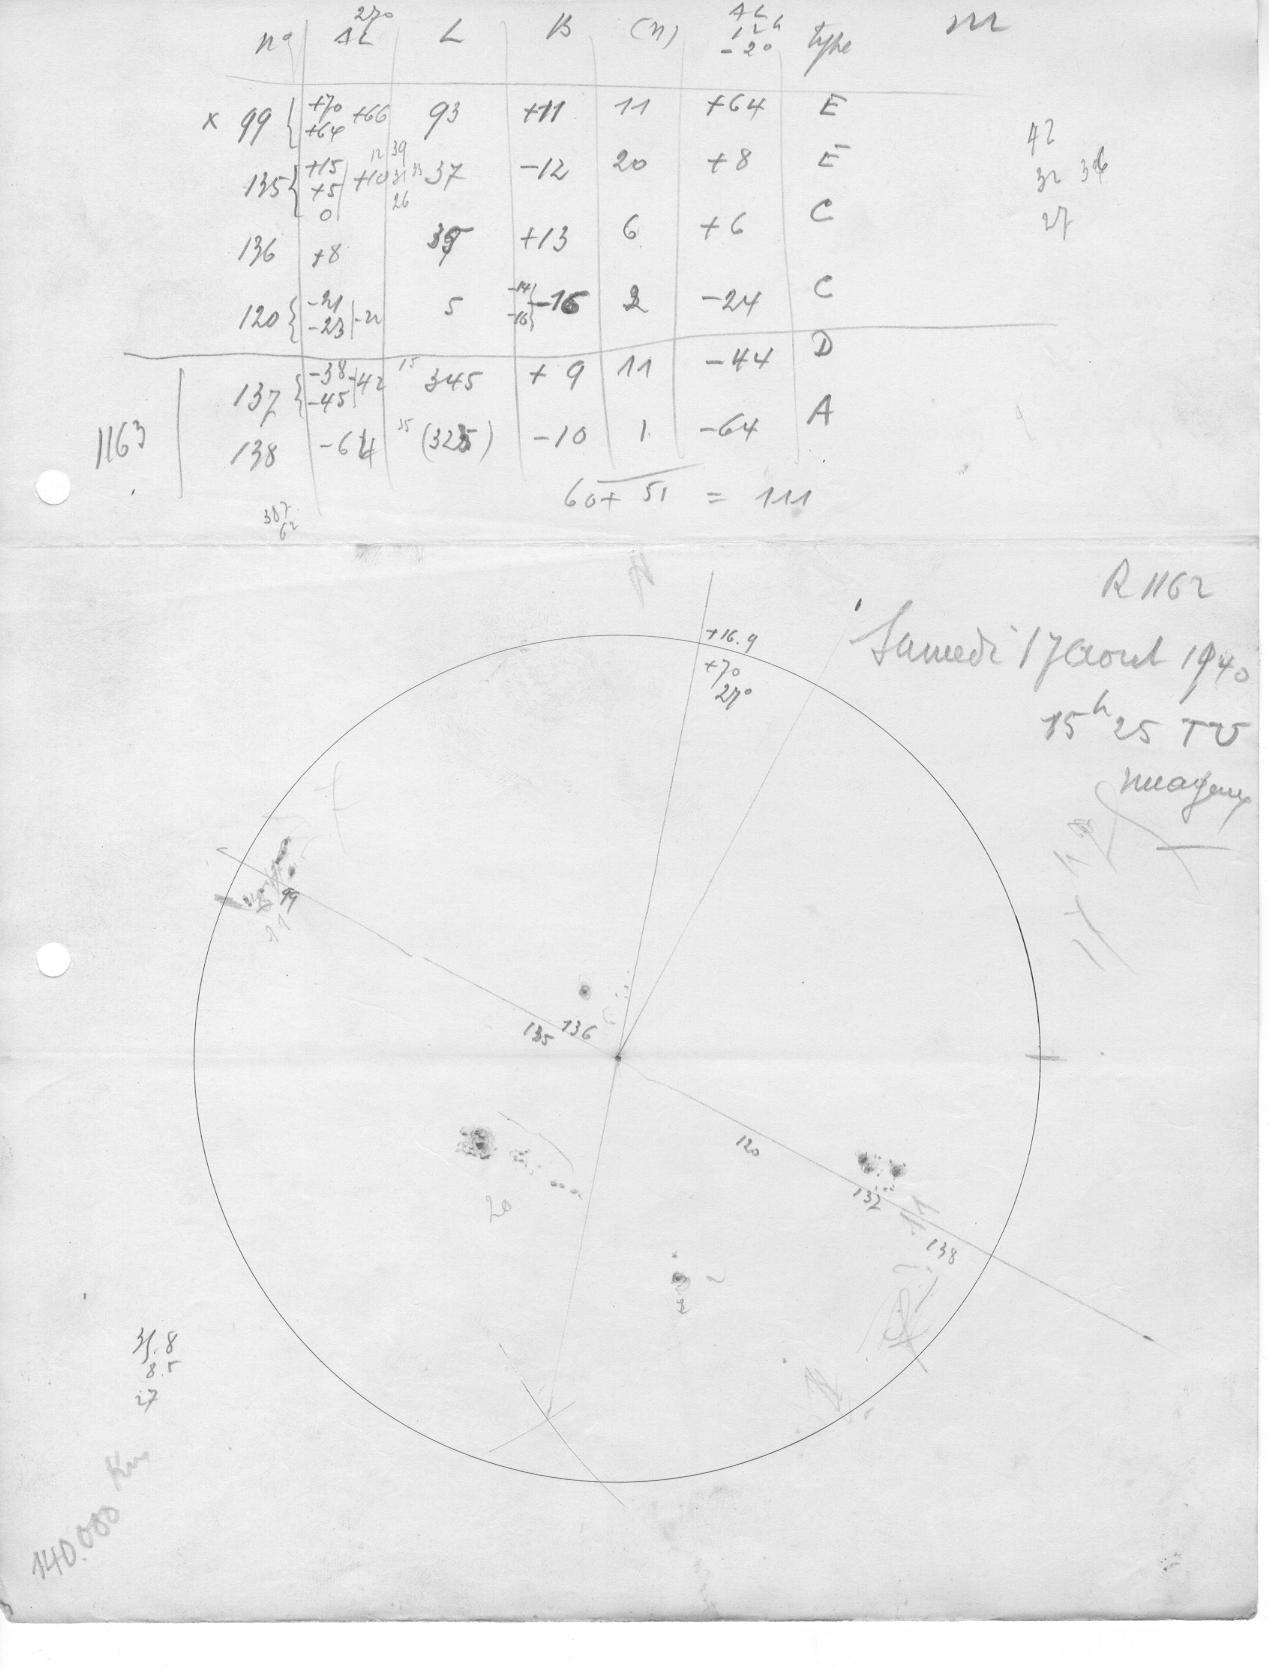 27°
n° ΔL L B (n) ΔL 12h -2° type m
x 99 { +70 +64 +66 93 +11 11 +64 E
135 { +15 +5 0 +10 12 39 31 33 26 37 -12 20 +8 E
42
32
27
136 +8 35 +13 6 +6 C
120 { -21 -23 -22 5 -14 -16 } -16 2 -24 C
137 { -38 -45 -42 15 345 +9 11 -44 D
1163
138 -64 35 (325) -10 1 -64 A
60 + 51 = 111
307
62
R 1162
+16.9
+70
27°
Samedi 17 Aout 1940
15h 25 TU
nuageux
99
11
135 136
120
137
11
138
20
2
31.8
8.5
27
140.000 Km